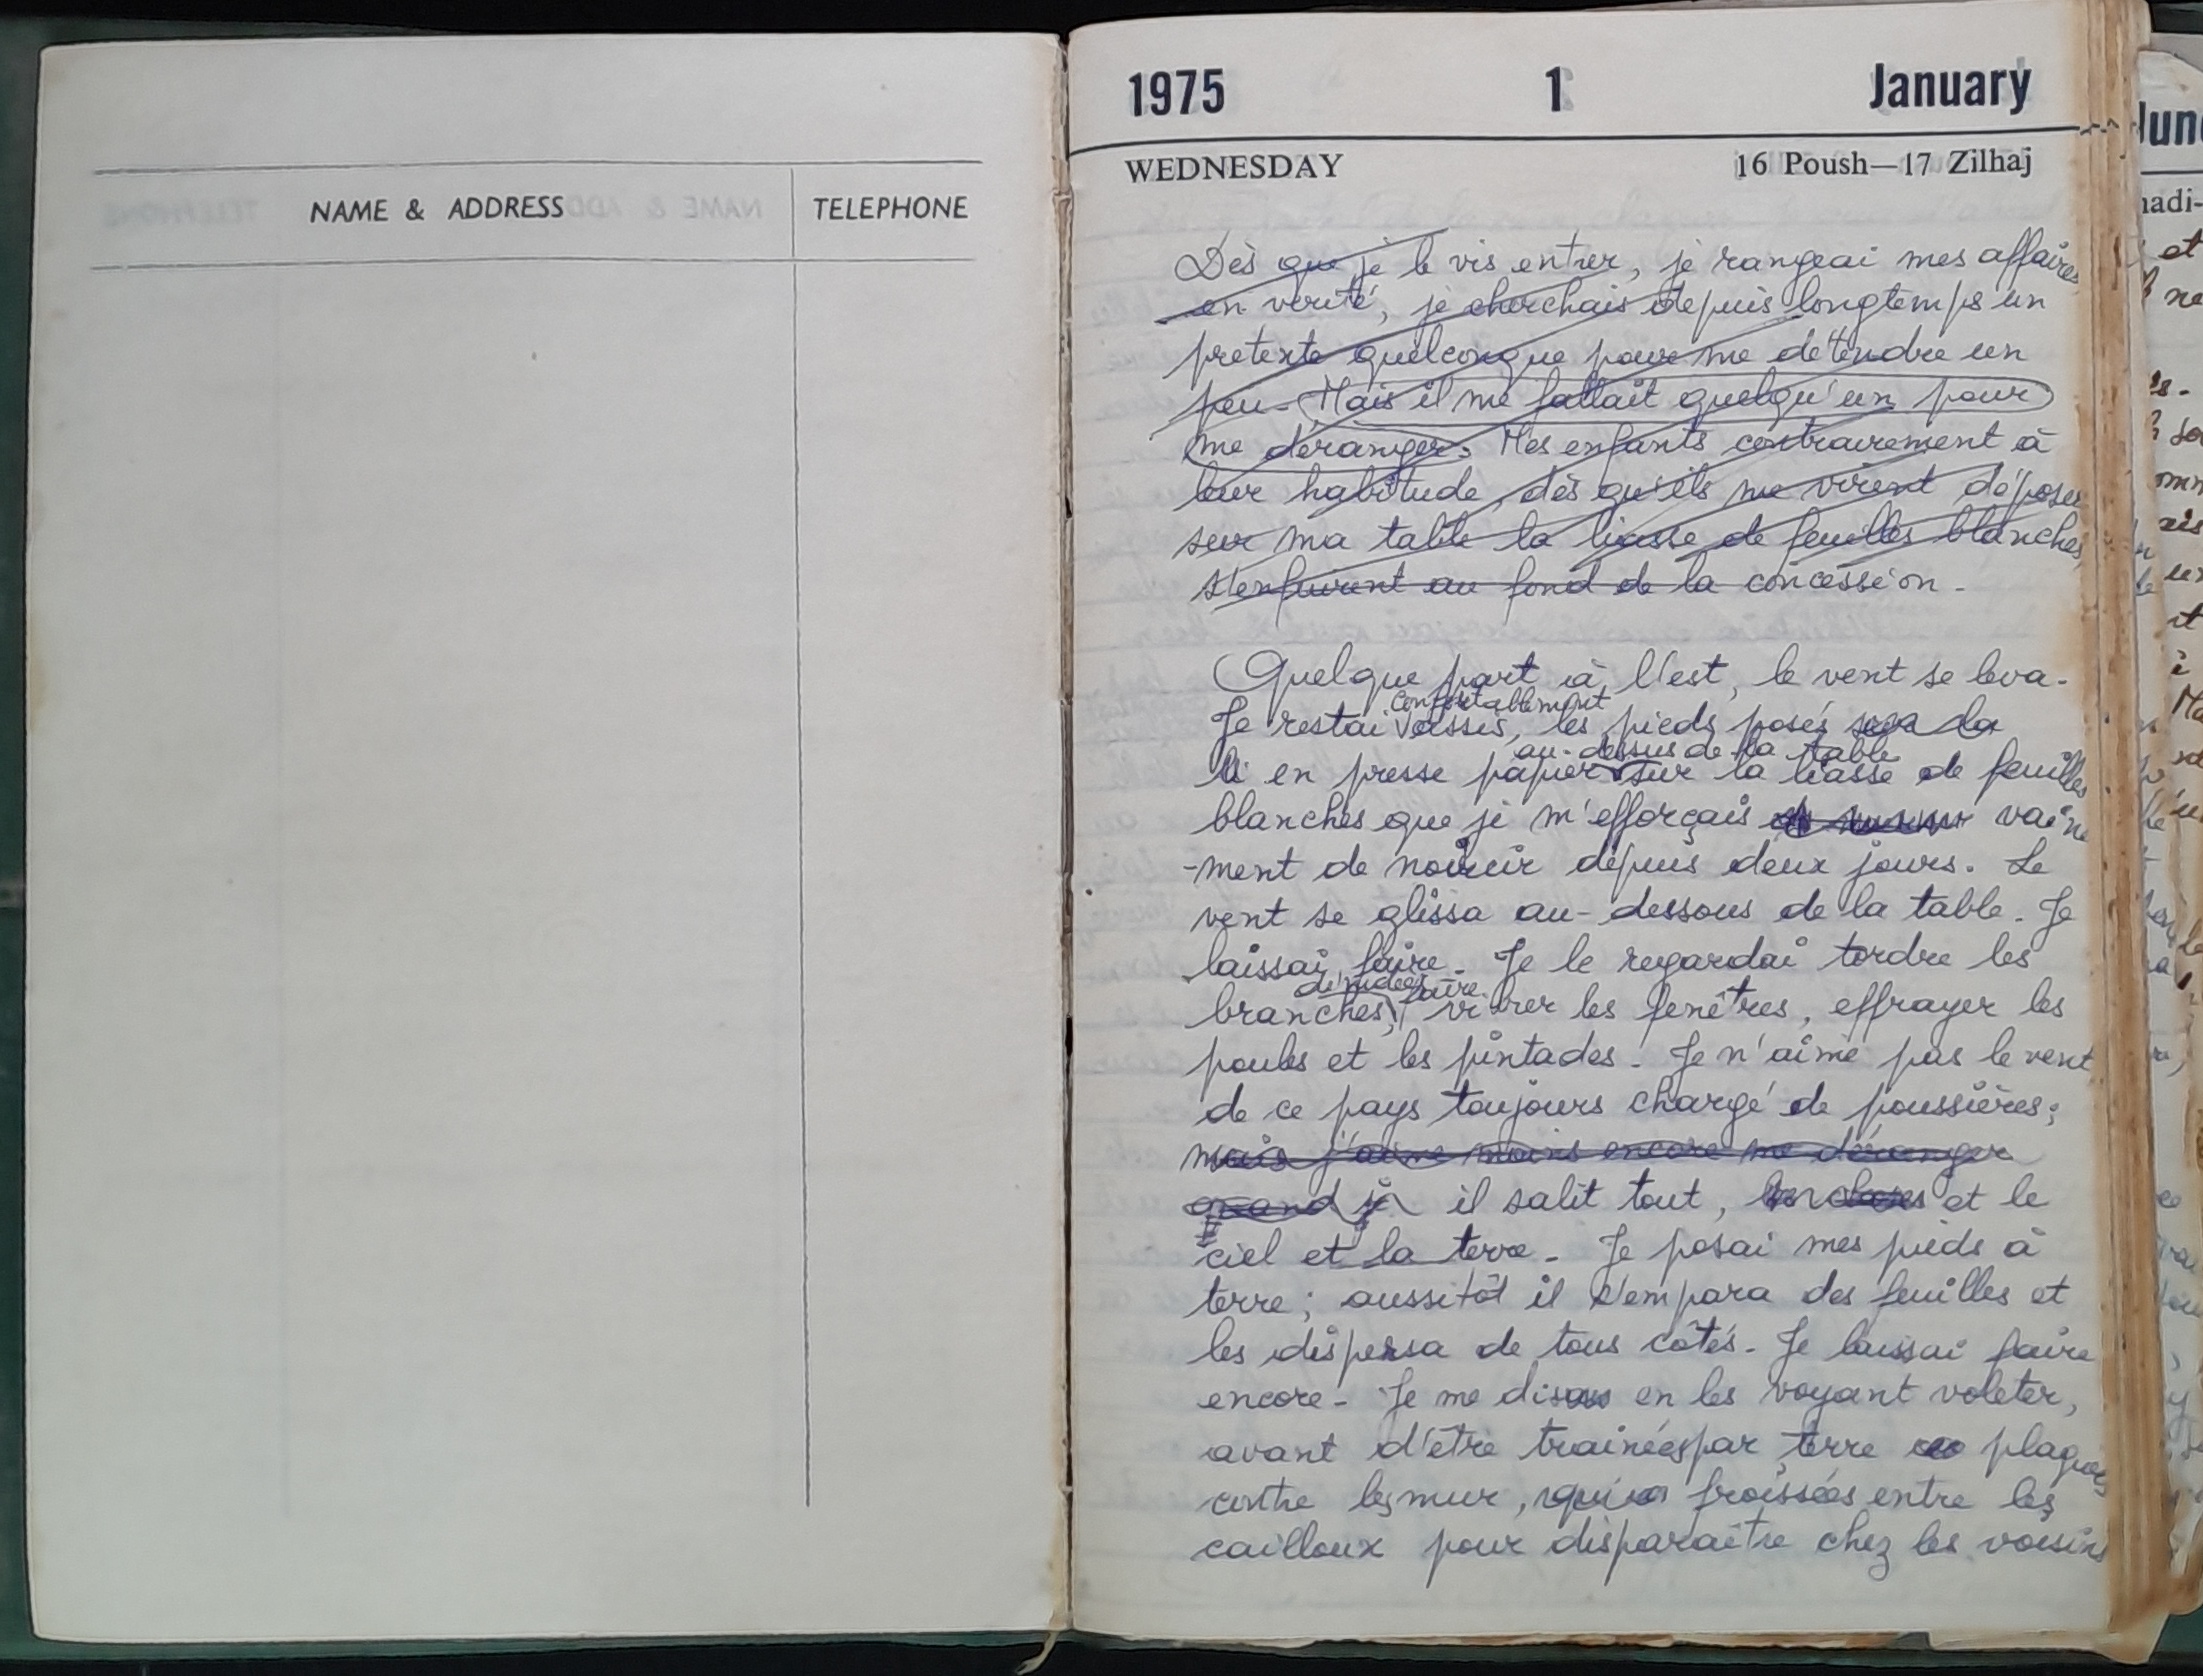 NAME & ADDRESS TELEPHONE
1975 1 January
WEDNESDAY 16 Poush—17 Zilhaj
Dès que je le vis entrer, je rangeai mes affaires
en vérité, je cherchais depuis longtemps un
pretexte quelconque pour me détendre un
peu. Mais il me fallait quelqu'un pour
me déranger. Mes enfants contrairement à
leur habitude, dès qu'ils me virent déposer
sur ma table la liasse de feuilles blanches,
s'enfuirent au fond de la concession.
Quelque part à l'est, le vent se leva.
confortablement
Je restai assis, les pieds posés sur la
au-dessus de la table
en presse papier sur la liasse de feuilles
blanches que je m'efforçais vaine
-ment de noircir depuis deux jours. Le
vent se glissa au-dessous de la table. Je
laissai faire. Je le regardai tordre les
dénudées faire
branches, vibrer les fenêtres, effrayer les
poules et les pintades. Je n'aime pas le vent
de ce pays toujours chargé de poussières;
mais j'aime moins encore me déranger
quand je il salit tout, et le
ciel et la terre. Je posai mes pieds à
terre; aussitôt il s'empara des feuilles et
les dispersa de tous côtés. Je laissai faire
encore. Je me disais en les voyant voleter,
avant d'être trainées par terre plaquées
contre les mur, froissées entre les
cailloux pour disparaître chez les voisins
June